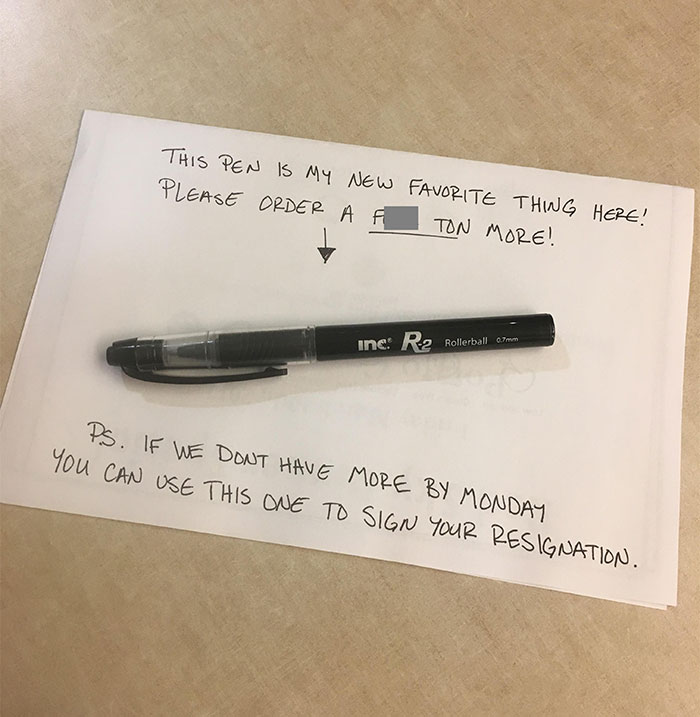 THIS PEN IS MY NEW FAVORITE THING HERE!
PLEASE ORDER A F TON MORE!
inc. R2 Rollerball 0.7mm
P.S. IF WE DONT HAVE MORE BY MONDAY
YOU CAN USE THIS ONE TO SIGN YOUR RESIGNATION.